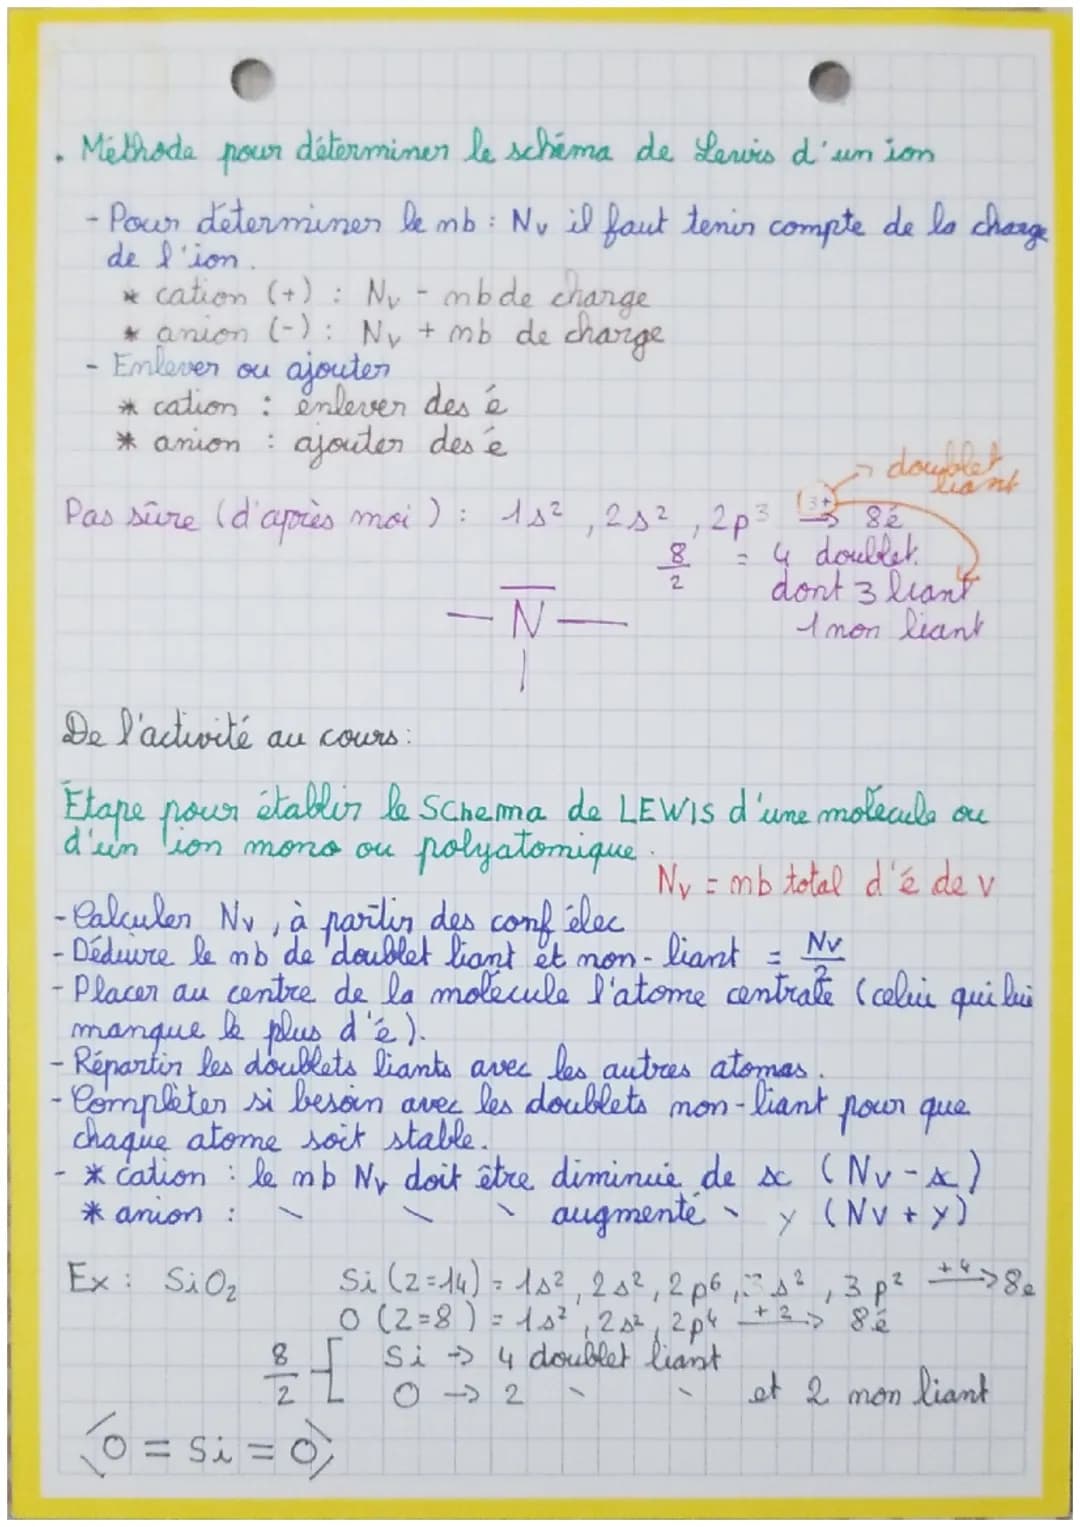 . Méthode pour déterminer le schéma de Lewis d'un ion
- Pour déterminer le nb : Nv il faut tenir compte de la charge
de l'ion.
* cation (+) : Nv - nb de charge
* anion (-) : Nv + nb de charge
- Enlever ou ajouter
* cation : enlever des é
* anion : ajouter des é
doublet
liant
Pas sûre (d'après moi) : 1s², 2s², 2p³ 3+ → 8é
8/2 = 4 doublet.
dont 3 liant
1 non liant
— N —
De l'activité au cours :
Etape pour établir le Schema de LEWIS d'une molécule ou
d'un ion mono ou polyatomique.
Nv = nb total d'é de v
- Calculer Nv, à partir des conf élec
- Déduire le nb de doublet liant et non-liant = Nv/2
- Placer au centre de la molécule l'atome centrale (celui qui lui
manque le plus d'é).
- Répartir les doublets liants avec les autres atomes.
- Complèter si besoin avec les doublets non-liant pour que
chaque atome soit stable.
- * cation : le nb Nv doit être diminuié de x (Nv - x)
* anion : \ \ \ augmenté \ y (Nv + y)
Ex : SiO₂ Si (Z=14) = 1s², 2s², 2p⁶, 3s², 3p² +4→ 8e
O (Z=8) = 1s², 2s², 2p⁴ +2→ 8é
8/2 [ Si → 4 doublet liant
O → 2 \ \ et 2 non liant
O = Si = O